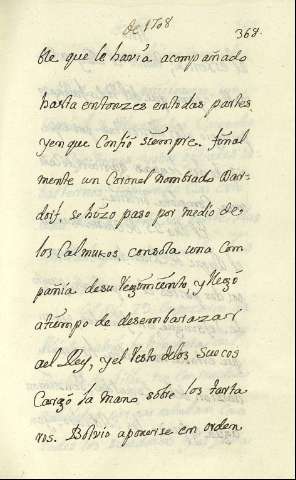 de 1708
368.
ble que le havía acompañado
hasta entonzes entodas partes
yenque Confió siempre. final
mente un Coronel nombrado Dar-
dorf, se hizo paso por medio de
los Calmukos consóla una Com
pañia desu Regimiento, y llegó
atiempo de desembarazar
ael Rey, yel Resto delos Suecos
Cargó la mano sôbre los tarta
ros. Bolvio aponerse en orden